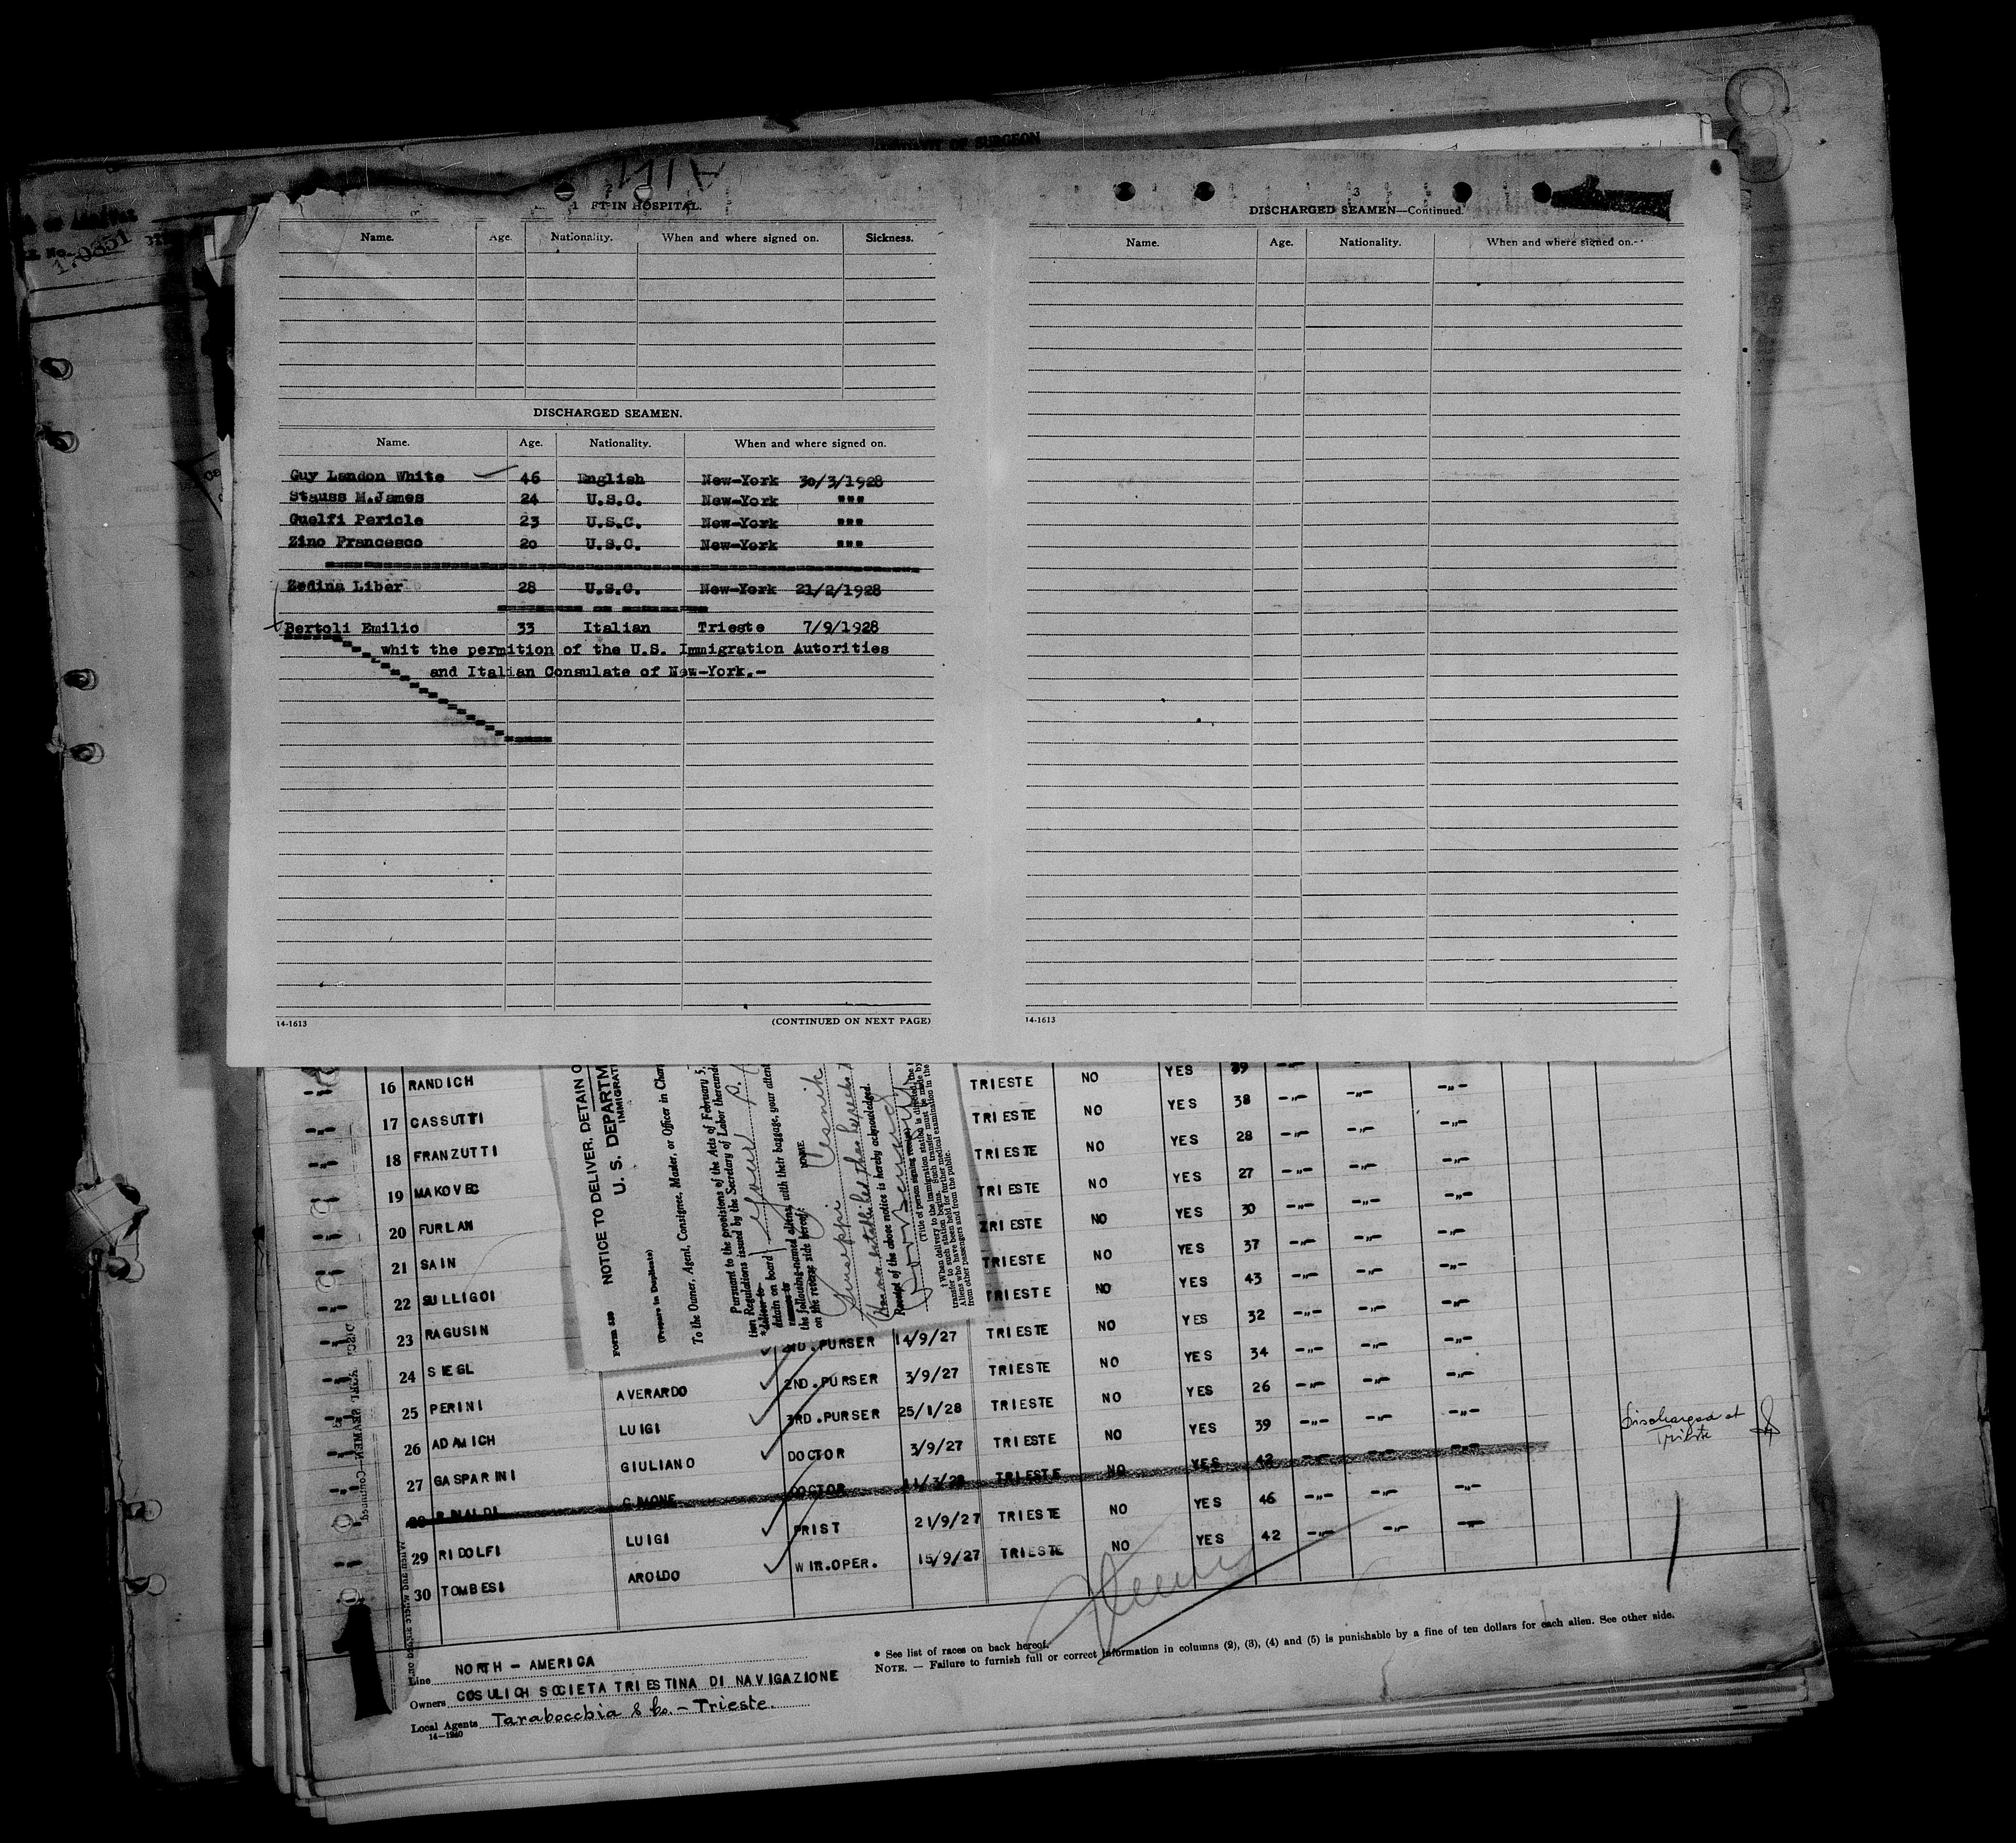 AFFIDAVIT OF SURGEON
2
FT IN HOSPITAL.
Name. Age. Nationality. When and where signed on. Sickness.
DISCHARGED SEAMEN.
Name. Age. Nationality. When and where signed on.
Guy Landon White 46 English New-York 30/3/1928
Stauss M.James 24 U.S.C. New-York """
Guelfi Pericle 23 U.S.C. New-York """
Zino Francesco 20 U.S.C. New-York """
Zedina Liber 28 U.S.C. New-York 21/2/1928
Bertoli Emilio 33 Italian Trieste 7/9/1928
whit the permition of the U.S. Immigration Autorities
and Italian Consulate of New-York.-
14-1613 (CONTINUED ON NEXT PAGE)
3
DISCHARGED SEAMEN—Continued.
Name. Age. Nationality. When and where signed on.
14-1613
16 RANDICH TRIESTE NO YES 39 -"- -"- -"-
17 CASSUTTI TRIESTE NO YES 38 -"- -"- -"-
18 FRANZUTTI TRIESTE NO YES 28 -"- -"- -"-
19 MAKOVEC TRIESTE NO YES 27 -"- -"- -"-
20 FURLAN TRIESTE NO YES 30 -"- -"- -"-
21 SAIN TRIESTE NO YES 37 -"- -"- -"-
22 SULLIGOI TRIESTE NO YES 43 -"- -"- -"-
23 RAGUSIN 2ND.PURSER 14/9/27 TRIESTE NO YES 32 -"- -"- -"-
24 SIEGL AVERARDO 2ND.PURSER 3/9/27 TRIESTE NO YES 34 -"- -"- -"-
25 PERINI LUIGI 3RD.PURSER 25/1/28 TRIESTE NO YES 26 -"- -"- -"-
26 ADAMICH GIULIANO DOCTOR 3/9/27 TRIESTE NO YES 39 -"- -"- -"-
27 GASPARINI
28 RINALDI DOCTOR TRIESTE NO YES 42 -"- -"- -"- Discharged at Trieste
29 RIDOLFI LUIGI PRIST 21/9/27 TRIESTE NO YES 46 -"- -"- -"-
30 TOMBESI AROLDO WIR.OPER. 15/9/27 TRIESTE NO YES 42 -"- -"- -"-
NOTICE TO DELIVER, DETAIN O
U. S. DEPARTM
IMMIGRATI
(Prepare in Duplicate)
To the Owner, Agent, Consignee, Master, or Officer in Char
Pursuant to the provisions of the Acts of February 5,
tion Regulations issued by the Secretary of Labor thereunde
detain on board
with their baggage, your attent
the following-named aliens
on the reverse side hereof:
NAME
Giuseppi Cesnik
Receipt of the above notice is hereby acknowledged.
(Title of person signing receipt)
† When delivery to the immigration station is directed, the
transfer to such station begins. Such transfer must be made by
Aliens who have been held for further medical examination in the
from other passengers and from the public.
Line NORTH - AMERICA
Owners COSULICH SOCIETA TRIESTINA DI NAVIGAZIONE
Local Agents Tarabocchia & Co. - Trieste.
14-1240
* See list of races on back hereof.
NOTE. — Failure to furnish full or correct information in columns (2), (3), (4) and (5) is punishable by a fine of ten dollars for each alien. See other side.